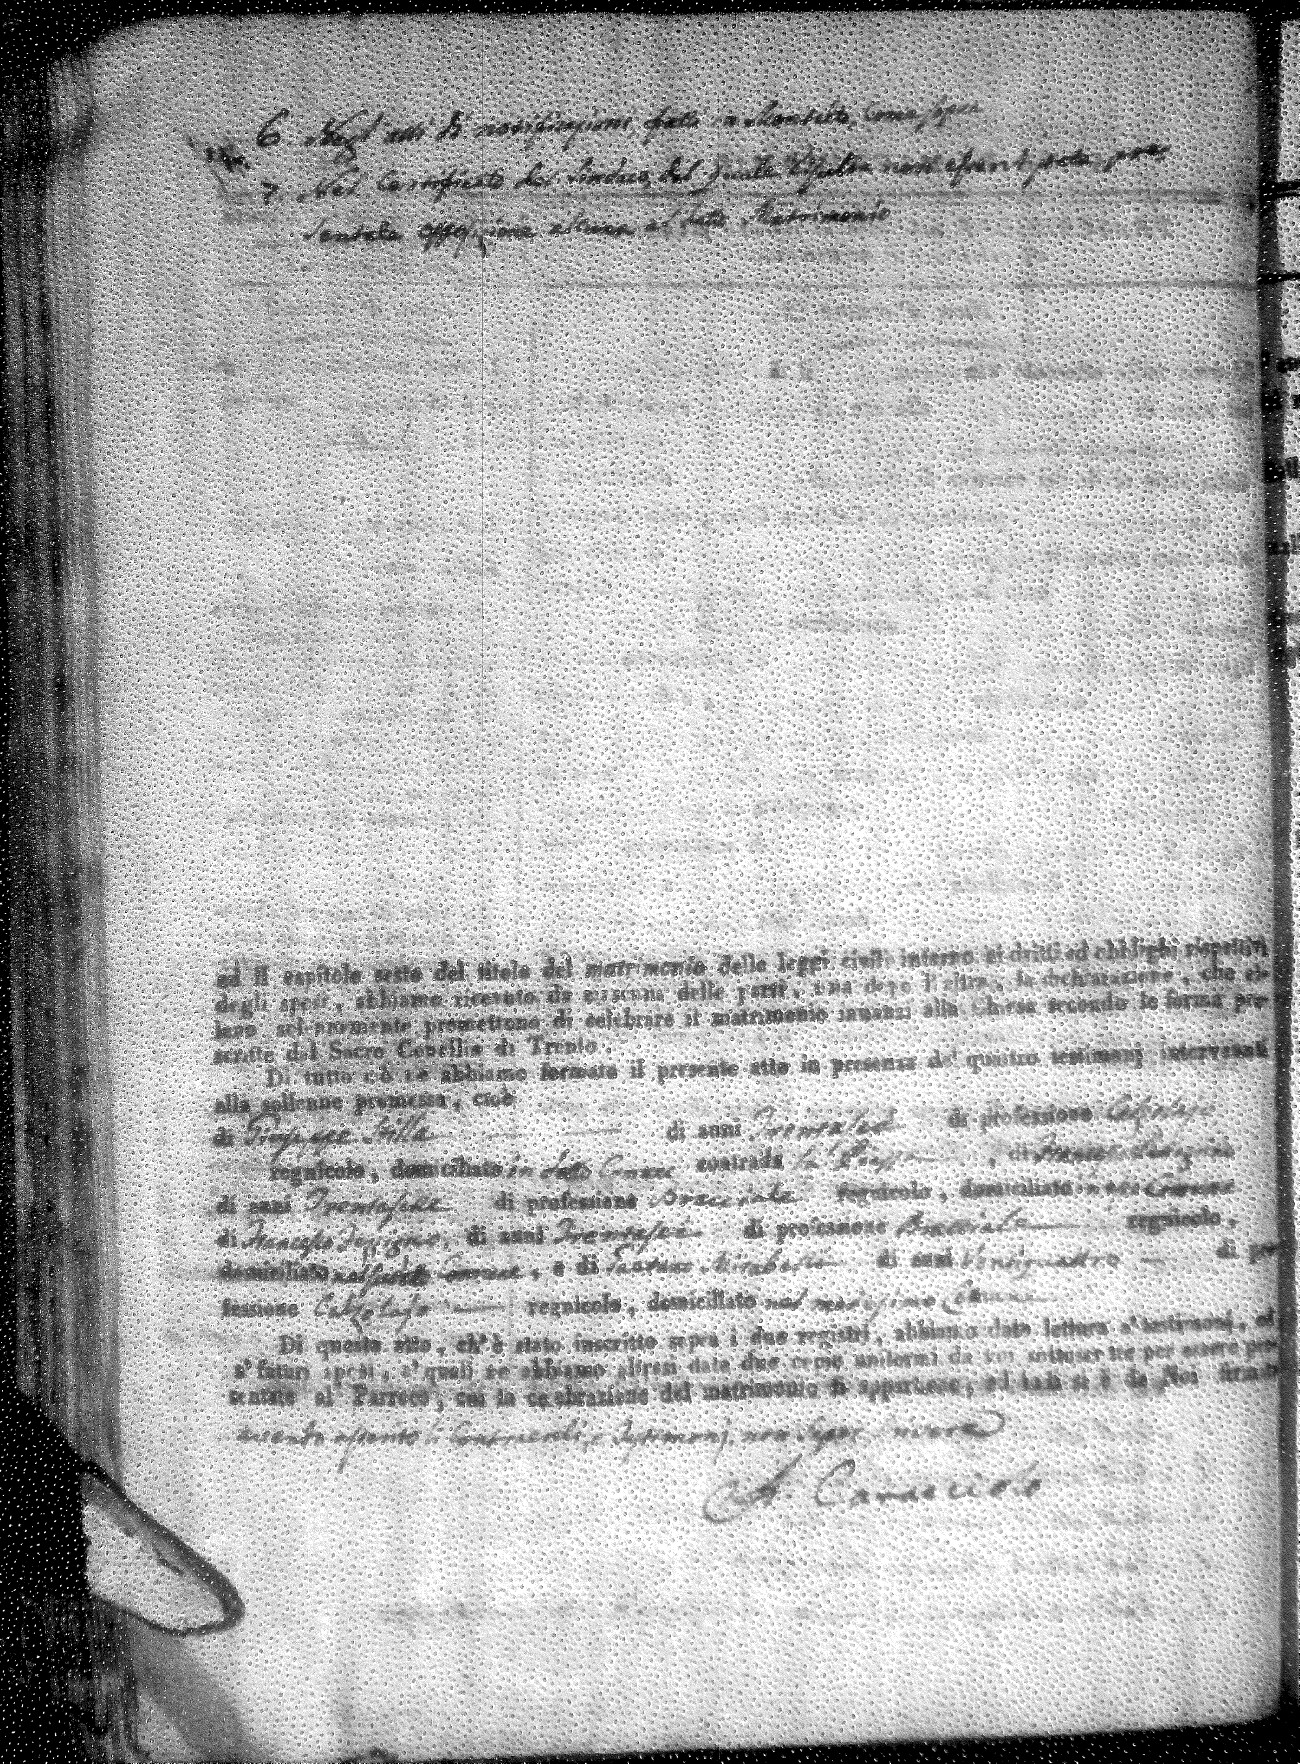 6 Negl' atti di notificazioni fatte in
7 Nel Certificato del Sindaco, dal quale risulta non essersi stata pre=
sentata opposizione alcuna al detto Matrimonio
ed il capitolo sesto del titolo del matrimonio delle leggi civili intorno ai dritti ed obblighi rispettivi
degli sposi, abbiamo ricevuto da ciascuna delle parti, una dopo l'altra, la dichiarazione, che el-
leno solennemente promettono di celebrare il matrimonio innanzi alla Chiesa secondo le forme pre-
scritte dal Sacro Concilio di Trento.
Di tutto ciò ne abbiamo formato il presente atto in presenza de' quattro testimonj intervenuti
alla solenne promessa, cioè
di Giuseppe Villa di anni di professione Calzolajo
regnicolo, domiciliato in detto Comune contrada la Piazza, di
di anni Trentasette di professione Bracciale regnicolo, domiciliato Comune
di Francesco di anni Trentasei di professione Bracciale regnicolo,
domiciliato Comune, e di Gaetano di anni Ventiquattro di pro-
fessione Calzolajo regnicolo, domiciliato nel medesimo Comune
Di questo atto, ch'è stato inscritto sopra i due registri, abbiamo dato lettura a' testimonj, ed
a' futuri sposi, a' quali ne abbiamo altresì date due copie uniformi da noi sottoscritte per essere pre-
sentate al Parroco, cui la celebrazione del matrimonio si appartiene, ed indi si è da Noi firmato
avendo asserito i Contraenti, e Testimonj non saper scrivere
A. Caracciolo